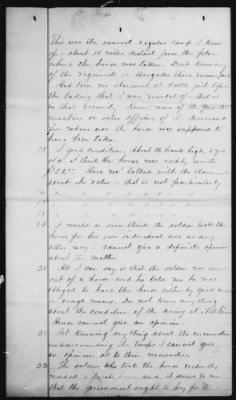 This was the nearest regular camp I knew
of - about 10 miles distant from the place
where the horse was taken. Dont know any
of the regiments or Brigades there encamped.
Had been no skirmish or battle just before
the taking that I was aware of - that is
in that vicinity. Knew none of the quarter
masters or other officers of the Command
for whose use the horse was supposed to
have been taken.
14 good condition. About 16 hands high, age
old. I think the horse was really worth
$150.00. Have not talked with the claimant
about its value - this is not particularly
15 " " " "
16 " " " "
17 " " " "
18 " " " "
19 I would as soon think the soldier took the
horse for his own individual use as any
other way - cannot give a definite opinion
about the matter.
20 All I can say is that the soldier was in
out of a horse and he told me he was
obliged to have the horse either by good means
or rough means. Do not know anything
about the condition of the army at that time
Hence cannot give an opinion.
21 Not knowing anything about the circumstances
surrounding the troops I cannot give
an opinion as to their necessities.
22 The soldier who took the horse evidently
needed a fresh one and it seems to me
that the government ought to pay for the